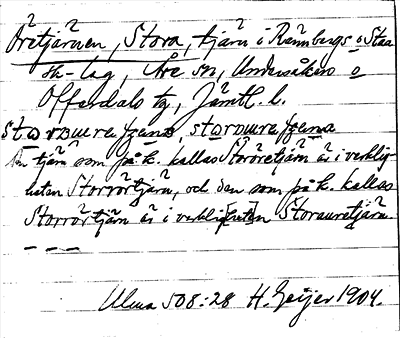 Öretjärnen, Stora, tjärn i Rännbergs o Staa
sk-lag, Åre sn, Undersåkers o
Offerdals tg, Jämtl. l.
Den tjärn som på k. kallas Storöretjärn är i verklig-
heten Storrörtjärn, och den som på k. kallas
Storrörtjärn är i verkligheten Storauretjärn.
— — —
Ulma 508:28 H. Geijer 1904.